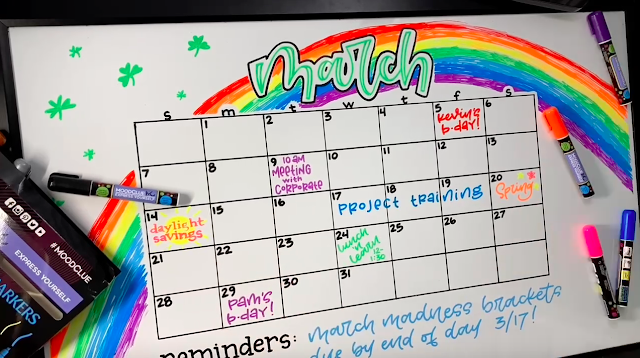 march
s m t w t f s
1 2 3 4 5 6
kevin's
b-day!
7 8 9 10 11 12 13
10 am
MEETING
with
CORPORATE
14 15 16 17 18 19 20
daylight
savings
PROJECT TRAINING
Spring
21 22 23 24 25 26 27
lunch
'n
learn
12-
1:30
28 29 30 31
Pam's
b-day!
reminders: march madness brackets
due by end of day 3/17!
MOODCLUE
#MOODCLUE
EXPRESS YOURSELF
MARKERS